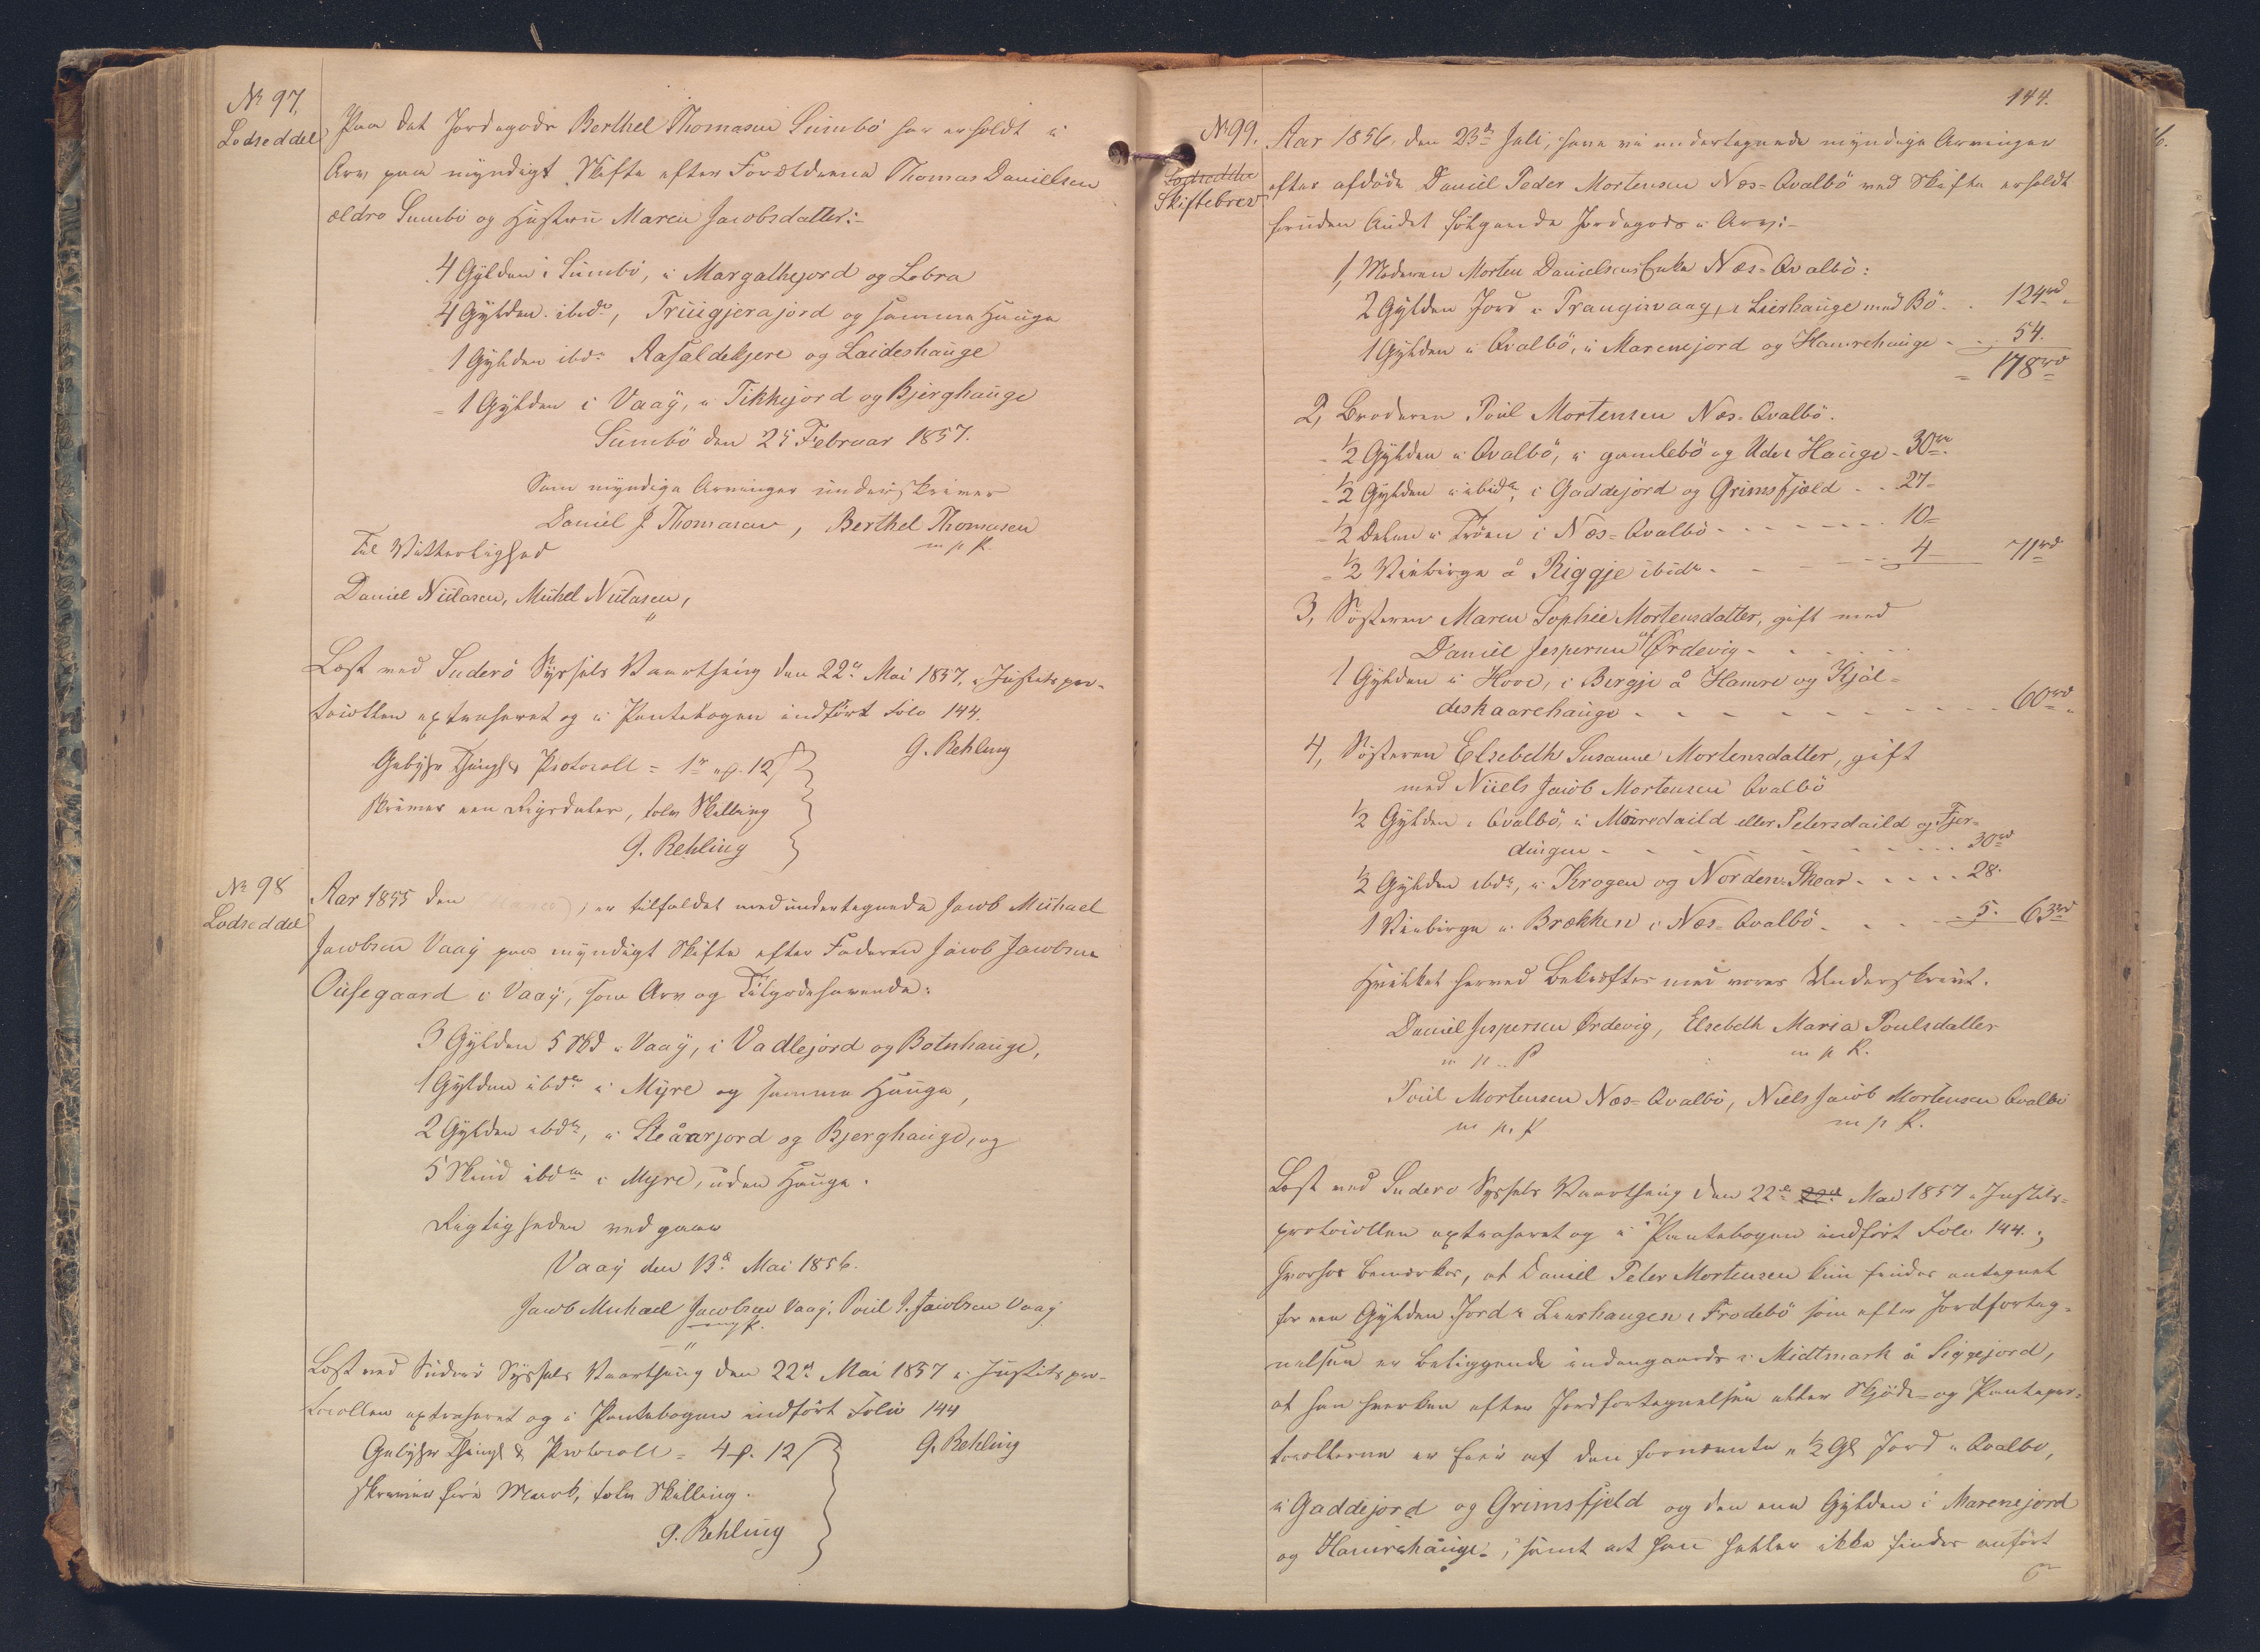 No 97.
Lodseddel
Paa det Jordegods Berthel Thomasen Sumbö har erholdt i
Arv paa myndigt Skifte efter Forældrene Thomas Danielsen
ældre Sumbö og Hustru Maren Jacobsdatter:-
4 Gylden i Sumbö, i Margathejord og Lobra
4 Gylden ibd, Truigjerajord og samme Hauge
1 Gylden ibd Aasaldekjere og Laideshauge
1 Gylden i Vaag, i Tikkejord og Bjerghauge
Sumbö den 25 Februar 1857.
Som myndige Arvinger underskriver
Daniel J. Thomasen, Berthel Thomasen
m p P.
Til Vitterlighed
Daniel Nielasen, Michel Nielasen,
Læst ved Suderö Syssels Vaarthing den 22d Mai 1857, i Justitspro-
tocollen extraheret og i Pantebogen indført Folio 144.
G. Rehling
Gebyhr Thingl & Protocoll = 1rd 12
skriver een Rigsdaler, tolv Skilling
G. Rehling
No 98
Lodseddel
Aar 1855 den er tilfaldet med undertegnede Jacob Michael
Jacobsen Vaag paa myndigt Skifte efter Faderen Jacob Jacobsen
Ouisegaard i Vaag, som Arv og Tilgodehavende:
3 Gylden 5 Skd i Vaag, i Vadlejord og Botnhauge,
1 Gylden ibd i Myre og samme Hauge,
2 Gylden ibd, i Steåarjord og Bjerghauge, og
5 Skind ibd i Myre, uden Hauge.
Rigtigheden vedgaaes
Vaag den 13d Mai 1856.
Jacob Michael Jacobsen Vaag, Poul J. Jacobsen Vaag
Læst ved Suderö Syssels Vaarthing den 22d Mai 1857 i Justitspro-
tocollen extraheret og i Pantebogen indført Folio 144
G. Rehling
Gebyhr Thingl & Protocoll = 4 12
skriver fire Mark, tolv Skilling.
G. Rehling
144.
No 99.
Lodseddel
Skiftebrev
Aar 1856. den 23d Juli, have vi undertegnede myndige Arvinger
efter afdöde Daniel Peder Mortensen Næs=Qvalbö ved Skifte erholdt
foruden Andet fölgende Jordegods i Arv:-
1, Moderen Morten Danielsens Enke Næs=Qvalbö:
2 Gylden Jord i Trangisvaag, i Lierhauge med Bö - 124rd
1 Gylden i Qvalbö, i Marenejord og Hamrehauge - 54.
178rd
2, Broderen Poul Mortensen Næs=Qvalbö.
1/2 Gylden i Qvalbö, i gamlebö og Uder Hauge - 30rd
1/2 Gylden i ibid, i Gaddejord og Grimsfjæld - 27
1/2 Delen i Tröen i Næs=Qvalbö - 10
1/2 Viebirge å Riggje ibid - 4 71rd
3, Söstren Maren Sophie Mortensdatter, gift med
Daniel Jespersen af Ördevig
1 Gylden i Hove, i Birgje å Hamre og Kjöl-
deskaarehauge - 60rd
4, Söstren Elsebeth Susanne Mortensdatter, gift
med Niels Jacob Mortensen Qvalbö
1/2 Gylden i Qvalbö, i Mörredaild eller Petersdaild og Fjer-
dingen - 30rd
1/2 Gylden ibd, i Krogen og Norden Skear - 28.
1 Viebirge i Brækken i Næs=Qvalbö - 5. 63rd
Hvilket herved bekræftes med vores Underskrivt.
Daniel Jespersen Ördevig, Elsebeth Maria Poulsdatter
m p P m p P.
Poul Mortensen Næs=Qvalbö, Niels Jacob Mortensen Qvalbö
m p. P m p P.
Læst ved Suderö Syssels Vaarthing den 22d 22d Mai 1857 i Justits-
protocollen extraheret og i Pantebogen indført Folio 144.;
hvorhos bemærkes, at Daniel Peter Mortensen kun findes antegnet
for een Gylden Jord i Lierhaugen i Frodebö som efter Jordforteg-
nelsen er beliggende indengaards i Midtmark å Siggejord,
at han hverken efter Jordfortegnelsen eller Skjöde- og Pantepro-
tocollerne er Eier af den fornævnte 1/2 Gl Jord i Qvalbö,
i Gaddejord og Grimsfjeld og den ene Gylden i Marenejord
og Hamrehauge, samt at han heller ikke findes anført